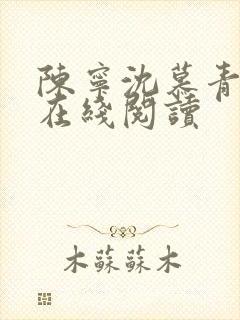 陳寧沈慕青
在綫閱讀
木蘇蘇木